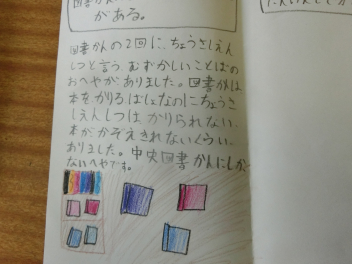 がある。
図書かんの2回に、ちょうさしえん
しつと言う、むずかしいことばの
おへやがありました。図書かんは
本をかりるばしょなのにちょうさ
しえんしつは、かりられない
本がかぞえきれないくらい
ありました。中央図書かんにしか
ないへやです。